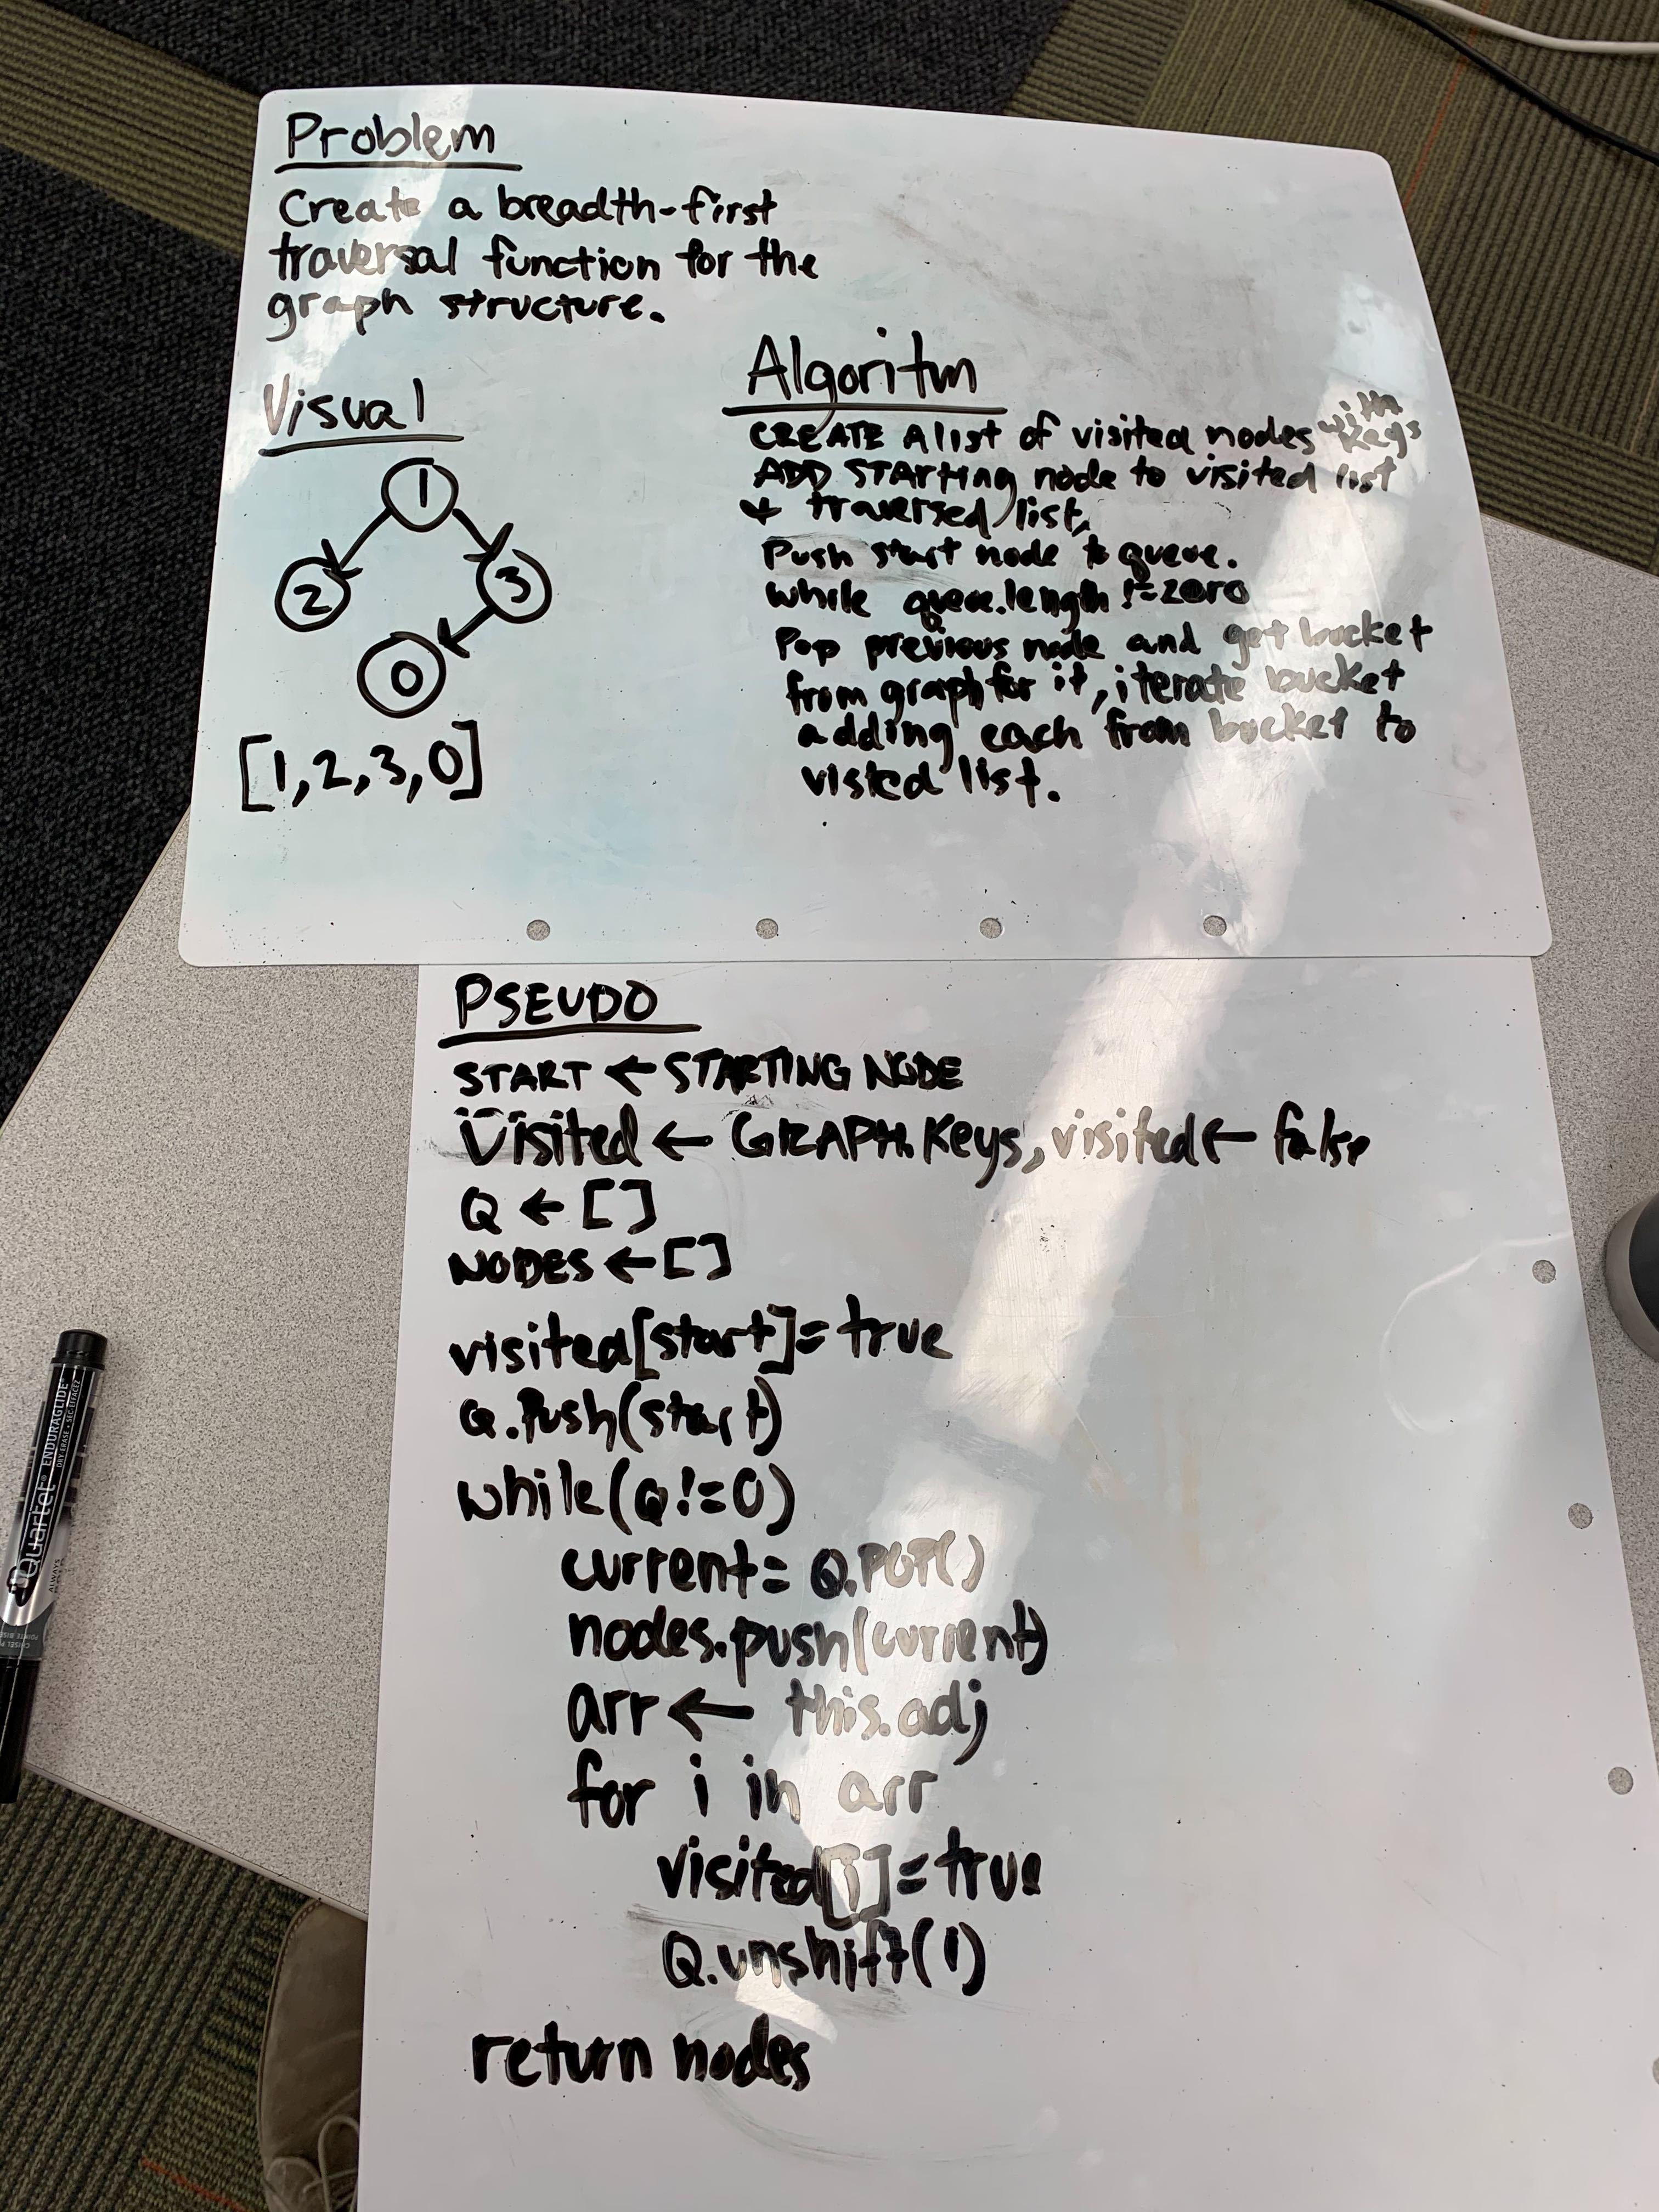 Problem
Create a breadth-first
traversal function for the
graph structure.
Visual
1
2
3
0
[1,2,3,0]
Algoritm
CREATE A list of visited nodes with keys
ADD STARting node to visited list
+ traversed list.
Push start node to queue.
while queue.length != zero
Pop previous node and get bucket
from graph for it, iterate bucket
adding each from bucket to
visted list.
PSEUDO
START ← STARTING NODE
Visited ← GRAPH.Keys, visited ← false
Q ← []
NODES ← []
visited[start]=true
Q.Push(start)
while(Q!=0)
current= Q.POP()
nodes.push(current)
arr ← this.adj
for i in arr
visited[i]=true
Q.unshift(i)
return nodes
Quartet ENDURAGLIDE
DRY-ERASE • SEC-EFFACEZ
ALWAYS